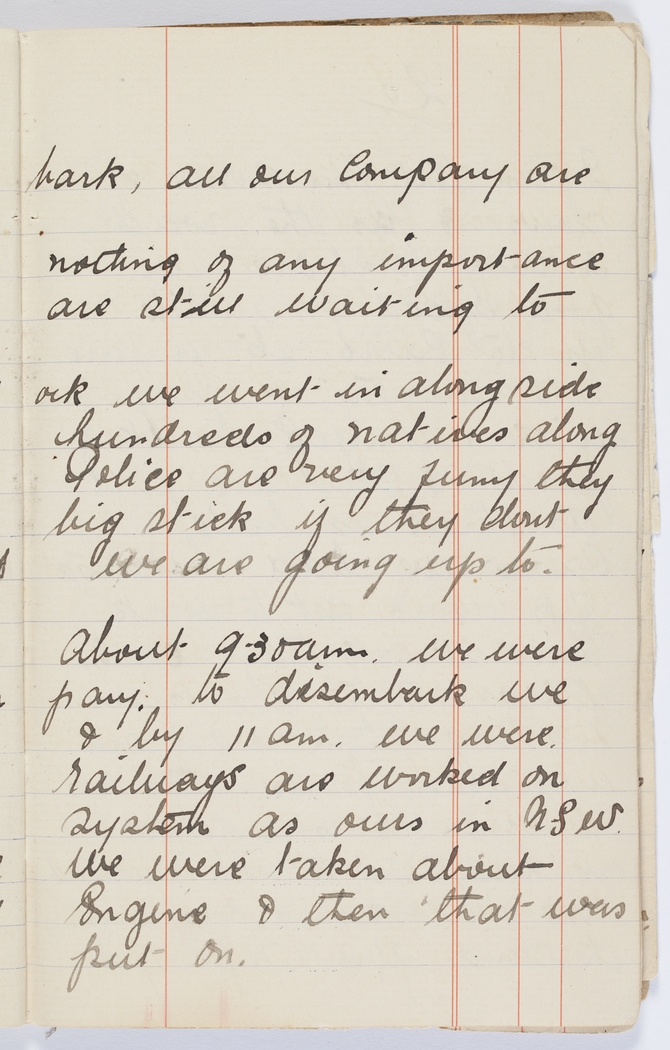 bark, all our Company are
nothing of any importance
are still waiting to
ork we went in alongside
hundreds of natives along
Police are very funy they
big stick if they dont
we are going up to.
About 9-30am. we were
pany. to disembark we
& by 11 am. we were.
railways are worked on
system as ours in N.S.W.
We were taken about
Engine & then that was
put on.